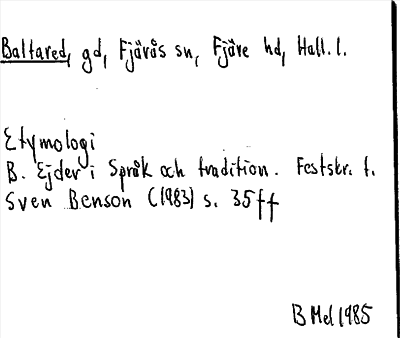 Baltared, gd, Fjärås sn, Fjäre hd, Hall. l.
Etymologi
B. Ejder i Språk och tradition. Festskr. t.
Sven Benson (1983) s. 35 ff
B Mel 1985